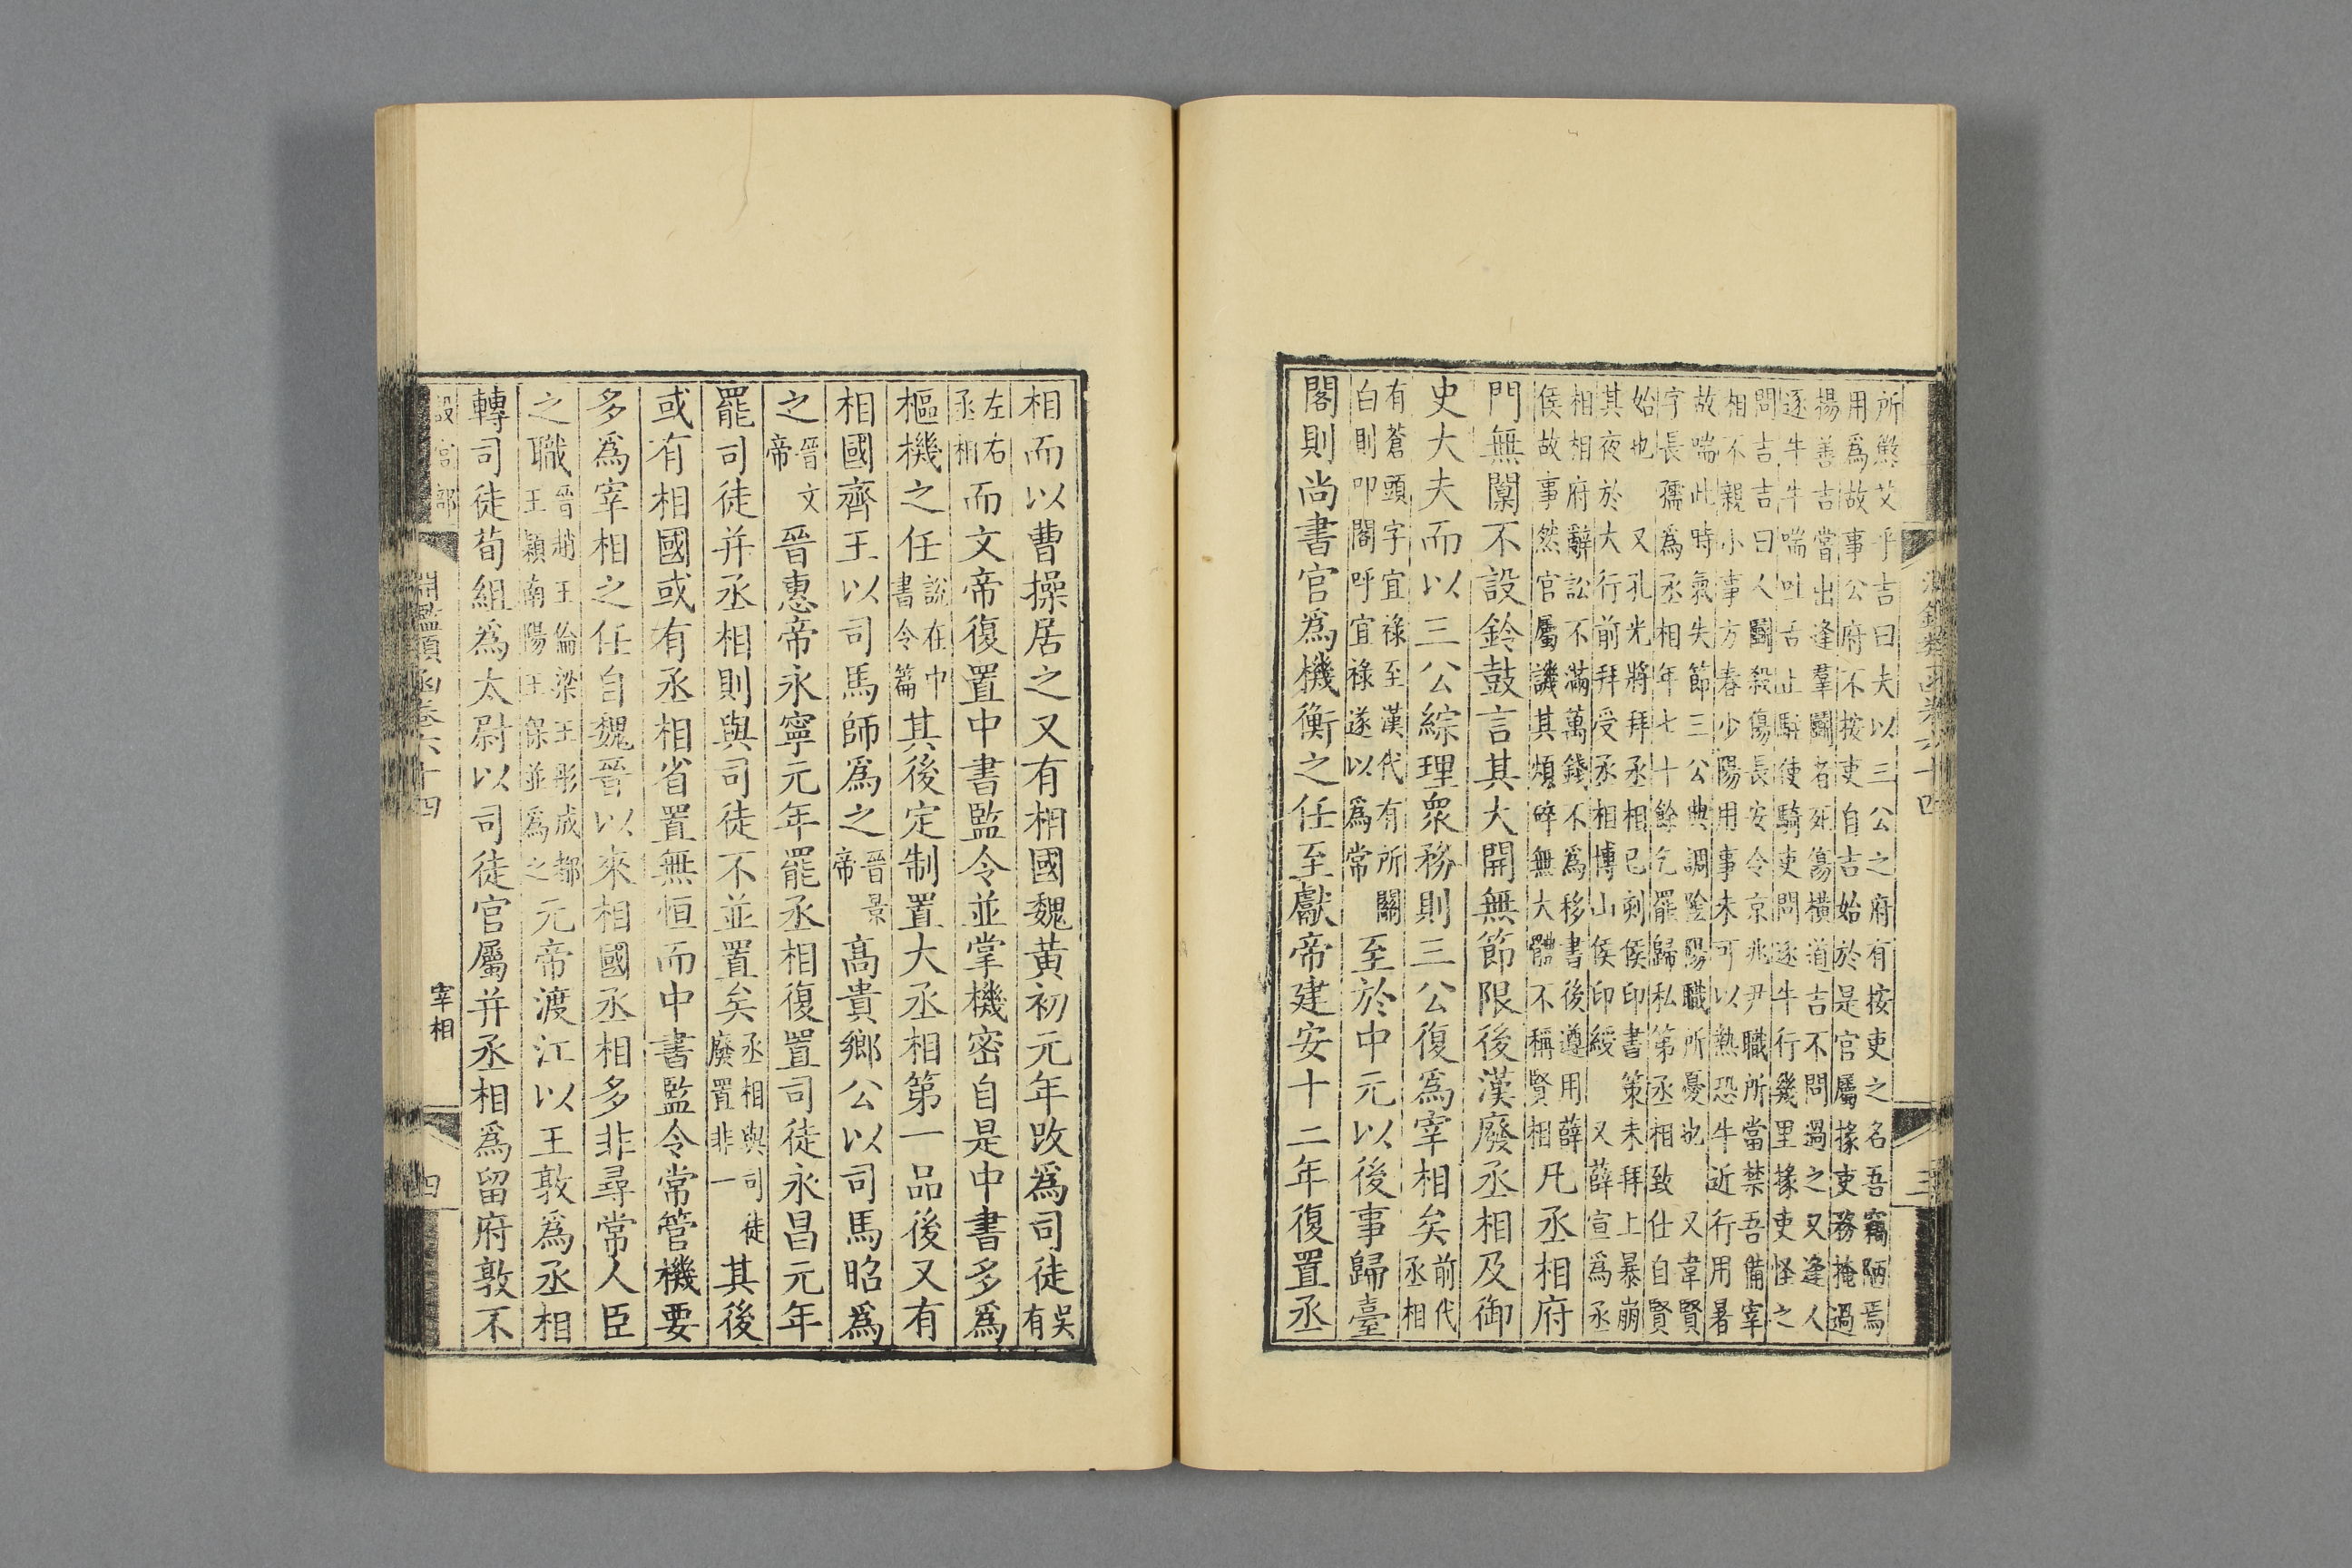 所懲艾乎吉曰夫以三公之府有按吏之名吾竊陋焉
用爲故事公府不按吏自吉始於是官屬掾吏務掩過
揚善吉嘗出逢羣鬬者死傷橫道吉不問過之又逢人
逐牛牛喘吐舌止駐使騎吏問逐牛行幾里掾吏怪之
問吉吉曰人鬬殺傷長安令京兆尹職所當禁吾備宰
相不親小事方春少陽用事未可以熱恐牛近行用暑
故喘此時氣失節三公典調陰陽職所憂也 又韋賢
字長孺爲丞相年七十餘乞罷歸私第丞相致仕自賢
始也 又孔光將拜丞相已刻侯印書策未拜上暴崩
其夜於大行前拜受丞相博山侯印綬 又薛宣爲丞
相相府辭訟不滿萬錢不爲移書後遵用薛
侯故事然官屬譏其煩碎無大體不稱賢相 凡丞相府
門無闑不設鈴鼓言其大開無節限後漢廢丞相及御
史大夫而以三公綜理衆務則三公復爲宰相矣前代丞相
有蒼頭字宜祿至漢代有所關
白則叩閣呼宜祿遂以爲常 至於中元以後事歸臺
閣則尚書官爲機衡之任至獻帝建安十二年復置丞
相而以曹操居之又有相國魏黃初元年改爲司徒吳有
左右丞相而文帝復置中書監令並掌機密自是中書多爲
樞機之任說在中書令篇其後定制置大丞相第一品後又有
相國齊王以司馬師爲之晉景帝高貴鄉公以司馬昭爲
之晉文帝晉惠帝永寧元年罷丞相復置司徒永昌元年
罷司徒并丞相則與司徒不並置矣丞相與司徒廢置非一其後
或有相國或有丞相省置無恒而中書監令常管機要
多爲宰相之任自魏晉以來相國丞相多非尋常人臣
之職晉趙王倫梁王彤成都王穎南陽王保並爲之元帝渡江以王敦爲丞相
轉司徒荀組爲太尉以司徒官屬并丞相爲留府敦不
設官部 淵鑑類函卷六十四 宰相 四